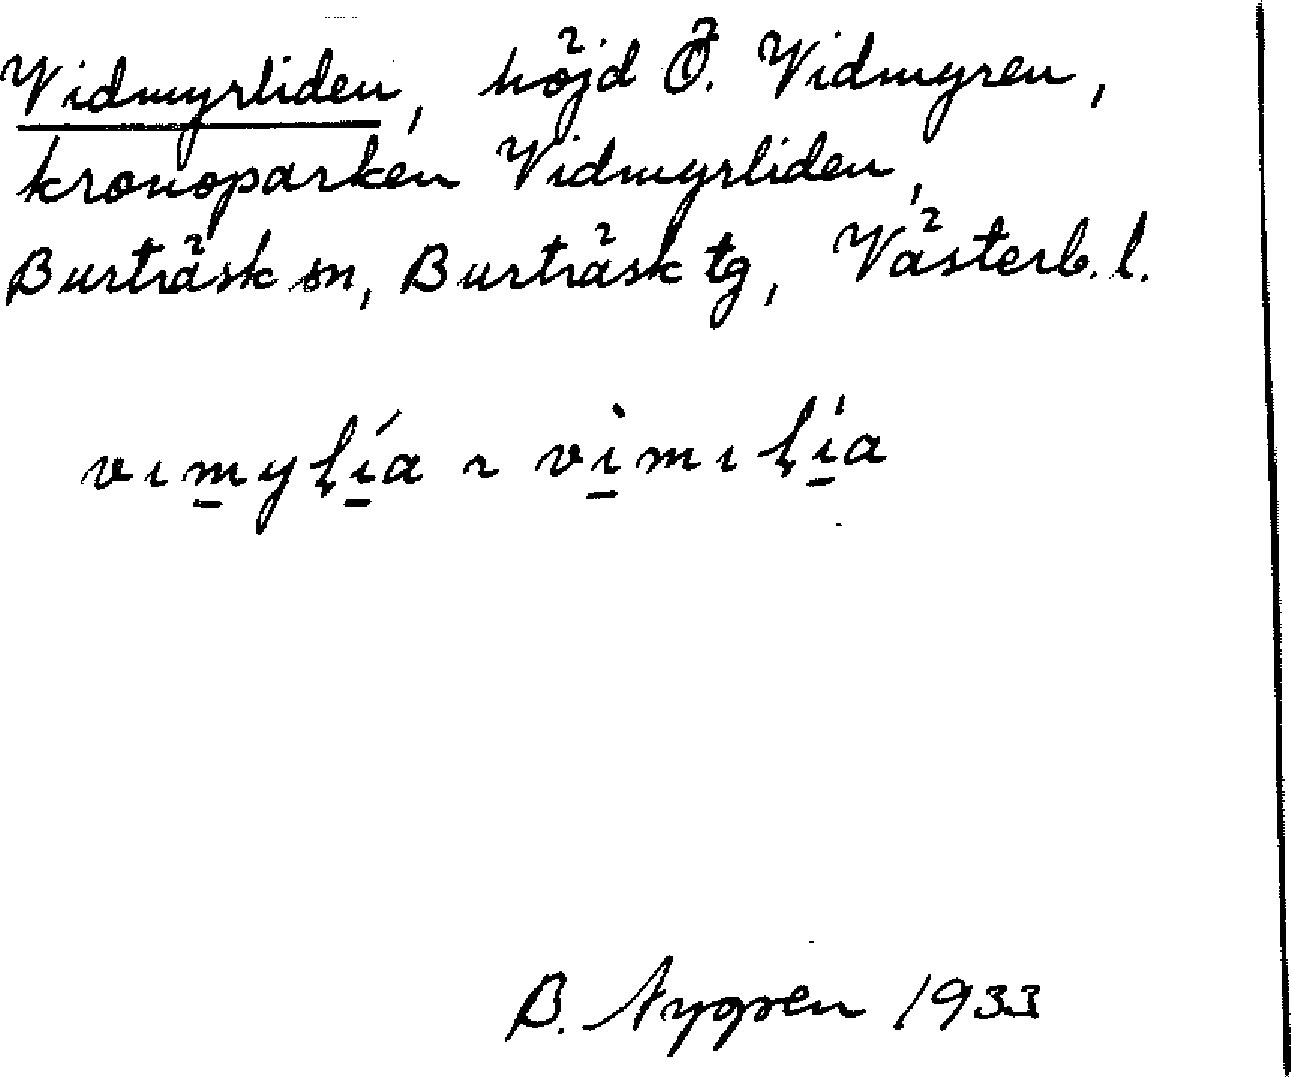 Vidmyrliden, höjd Ö. Vidmyren,
kronoparken Vidmyrliden,
Burträsk sn, Burträsk tg, Västerb. l.
vım̲yļı̲́a ~ vı̲̀mıļı̲́a
B. Nygren 1933